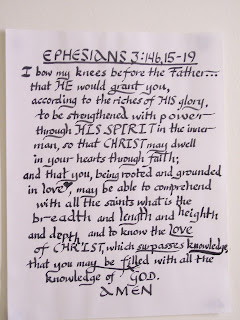 EPHESIANS 3:14&16,15-19
I bow my knees before the Father...
that HE would grant you,
according to the riches of HIS glory,
to be strengthened with power
through HIS SPIRIT in the inner
man, so that CHRIST may dwell
in your hearts through faith;
and that you, being rooted and grounded
in love, may be able to comprehend
with all the saints what is the
breadth and length and heighth
and depth, and to know the love
of CHRIST, which surpasses knowledge,
that you may be filled with all the
knowledge of GOD.
AMEN